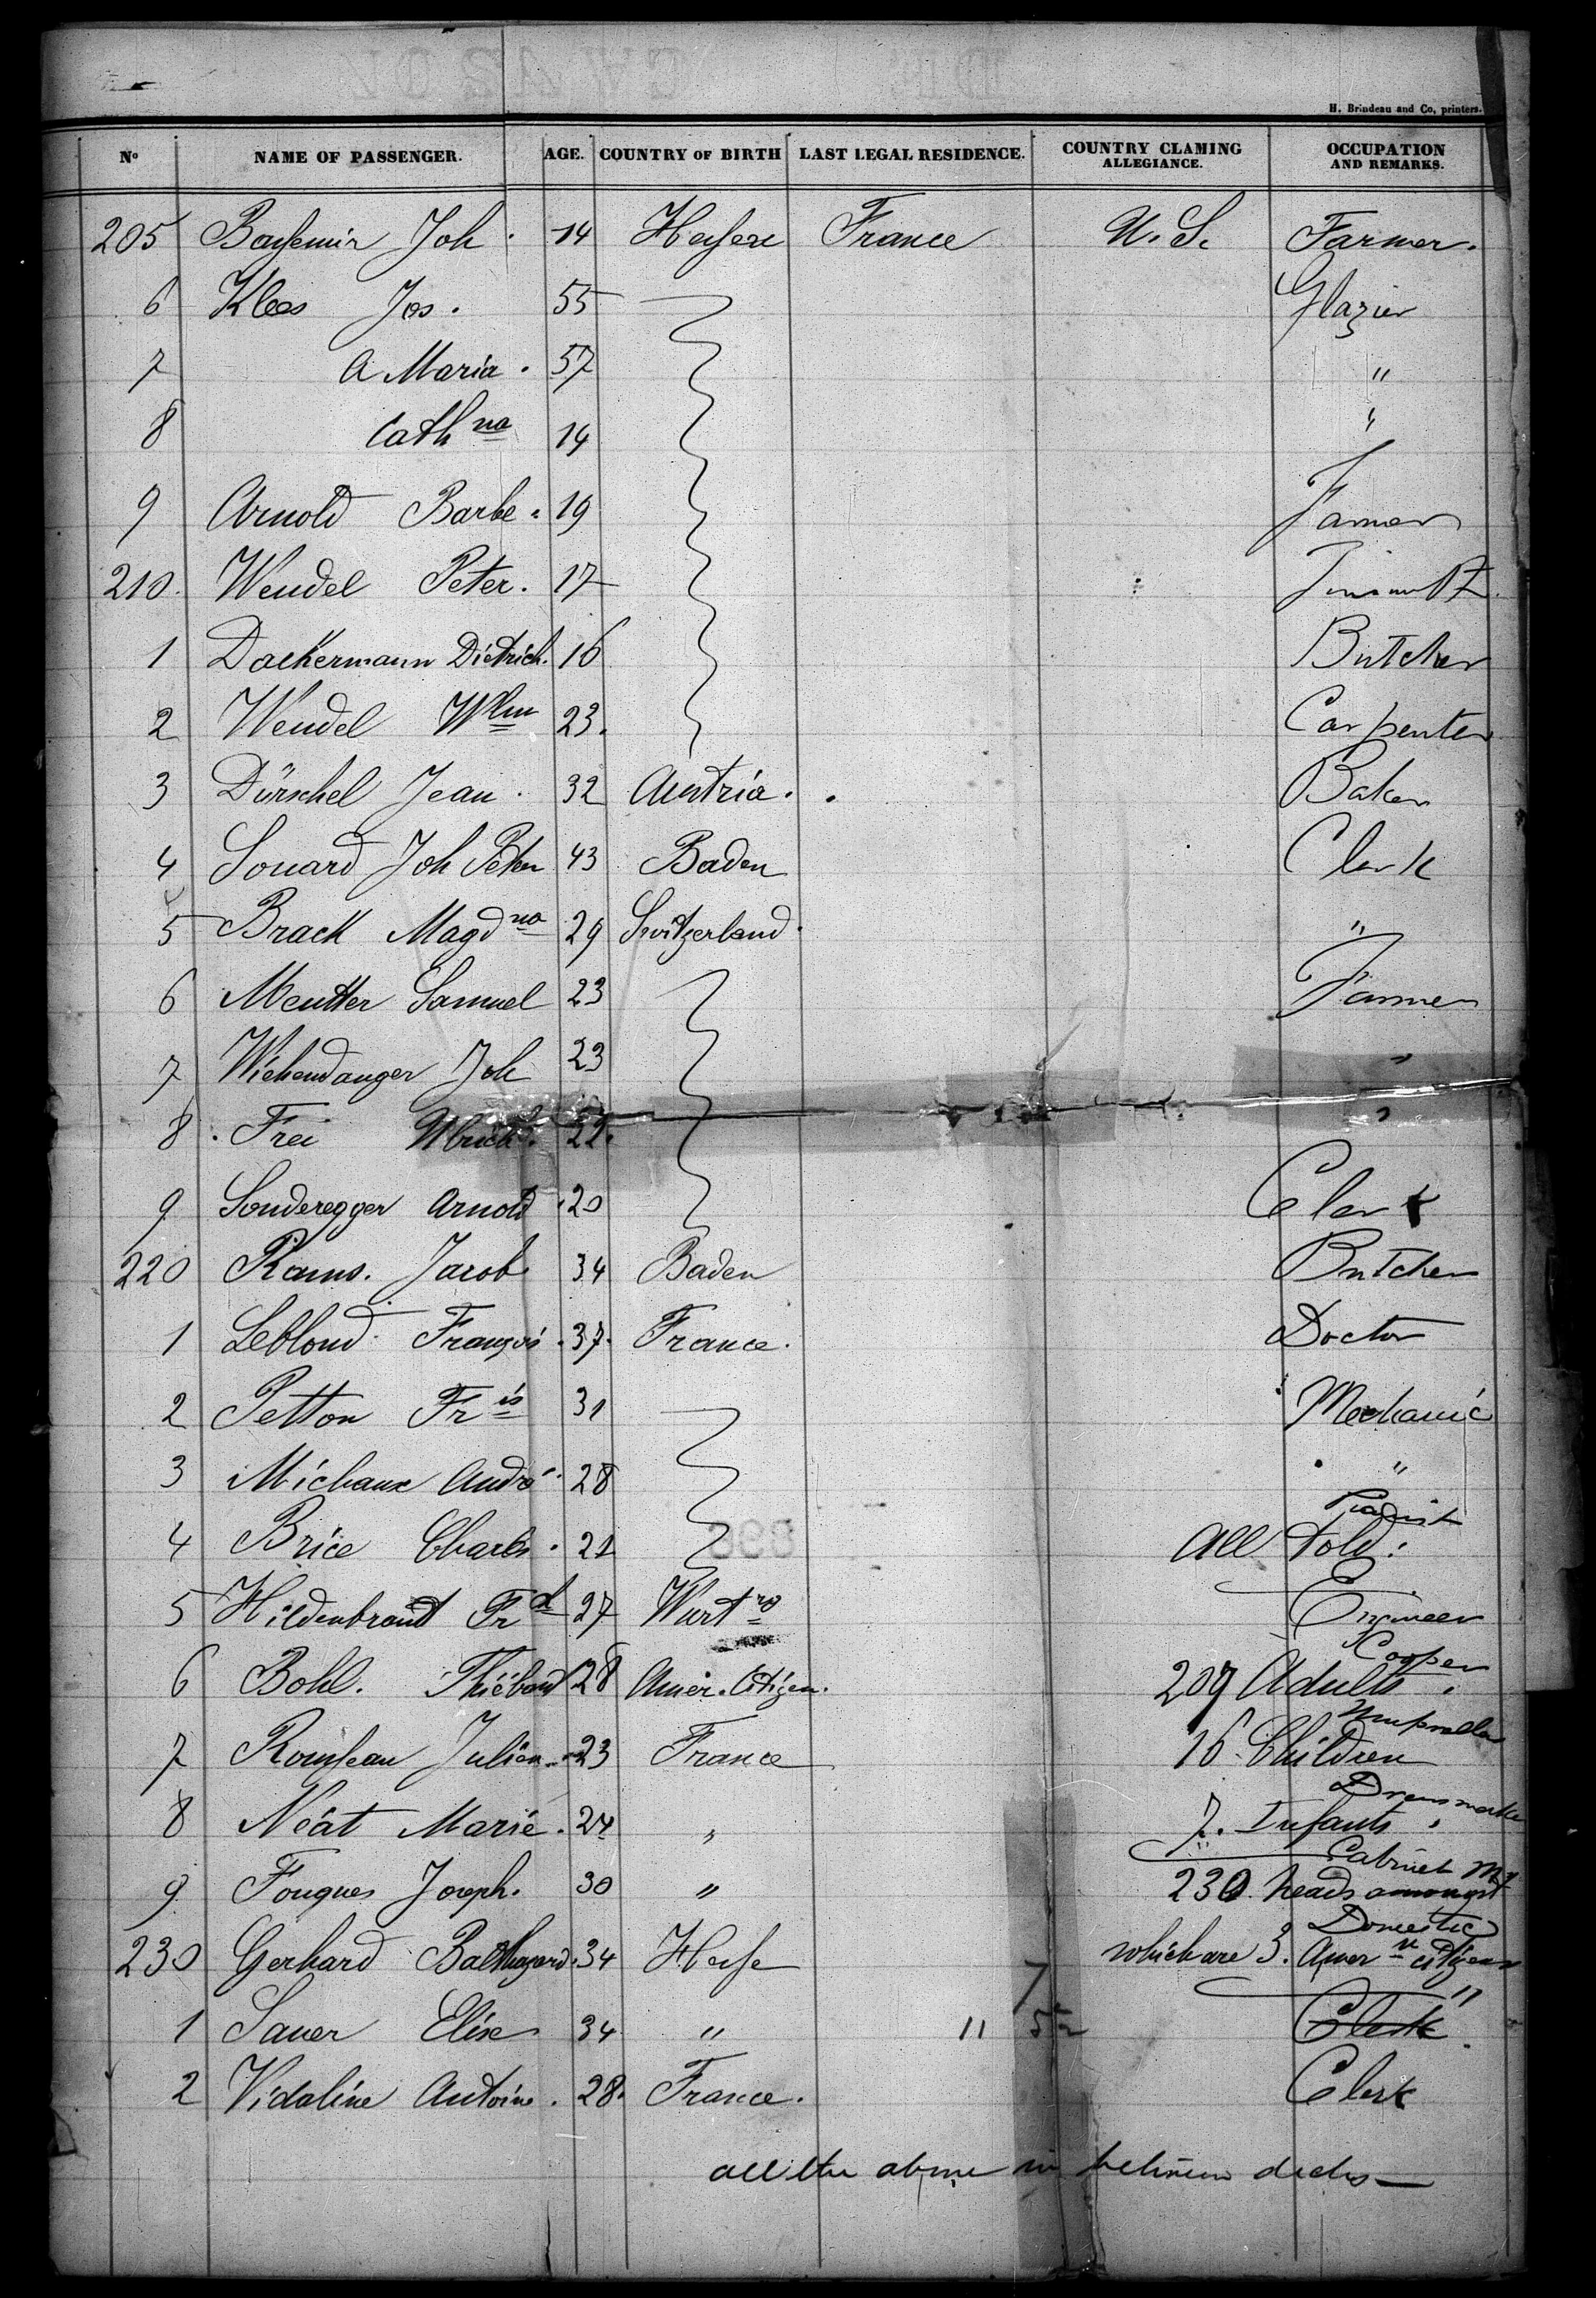 H. Brindeau and Co, printers.
No NAME OF PASSENGER. AGE. COUNTRY OF BIRTH LAST LEGAL RESIDENCE. COUNTRY CLAMING ALLEGIANCE. OCCUPATION AND REMARKS.
205 Joh. 14 France U. S. Farmer.
6 Klees Jos. 55 Glazier
7 A Maria. 57 "
8 Cathna 14 "
9 Arnold Barbe. 19 Farmer
210. Wendel Peter. 17
1 Dackermann Dietrich. 16 Butcher
2 Wendel Wlm 23. Carpenter
3 Dürschel Jean. 32 Austria. Baker
4 Souard Joh Peter 43 Baden Clerk
5 Brack Magdna 29 Switzerland. "
6 Meutter Samuel 23 Farmer
7 Joh 23 "
8. Frei Ulrich. 22. "
9 Sonderegger Arnold. 20 Clerk
220 Rams. Jacob 34 Baden Butcher
1 Leblond François. 37. France. Doctor
2 Petton Fris 31 Mechanic
3 Michaux André 28 "
4 Brice Charles. 21
All told:
5 Hildenbrandt Frd 27 Wurtrg Engineer
6 Bohl. Thiébaud 28 Amer. Citizen. Cooper
209 Adults
7 Rousseau Julien 23 France
16 Children
8 Néat Marie. 24 " Dressmaker
7. Infants
9 Fouques Joseph. 30 " Cabinet Mr
230. heads amongst
230 Gerhard Balthazard. 34 Hesse Domestic
which are 3. Amern citizens
1 Sauer Elise 34 " " Clerk "
2 Vidaline Antoine. 28. France. Clerk
all the above in between decks